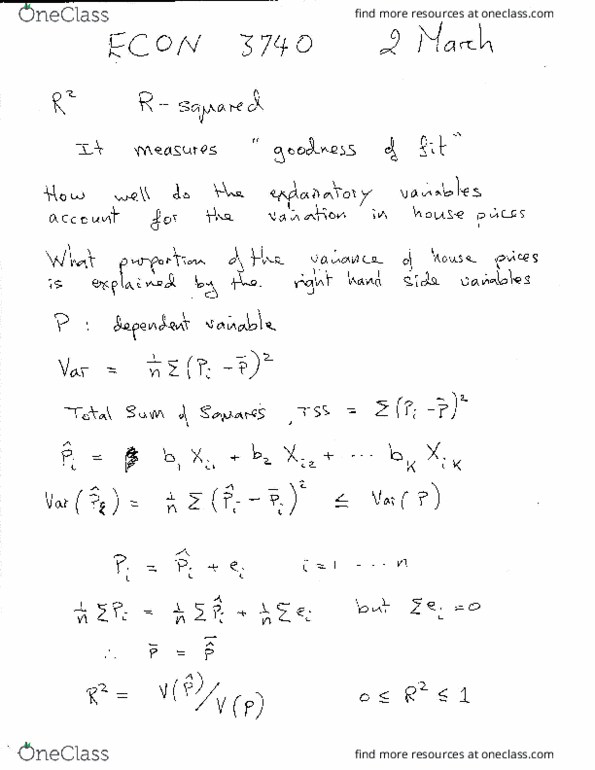 OneClass
find more resources at oneclass.com
ECON 3740 2 March
R² R-squared
It measures "goodness of fit"
How well do the explanatory variables
account for the variation in house prices
What proportion of the variance of house prices
is explained by the. right hand side variables
P : dependent variable
Var = 1/n Σ(Pᵢ - P̄)²
Total Sum of Squares, TSS = Σ(Pᵢ - P̄)²
P̂ᵢ = b₁ Xᵢ₁ + b₂ Xᵢ₂ + ... b_K X_iK
Var(P̂) = 1/n Σ(P̂ᵢ - P̄ᵢ)² ≤ Var(P)
Pᵢ = P̂ᵢ + eᵢ i = 1 .... n
1/n ΣPᵢ = 1/n ΣP̂ᵢ + 1/n Σeᵢ but Σeᵢ = 0
∴ P̄ = P̂̄
R² = V(P̂)/V(P) 0 ≤ R² ≤ 1
OneClass
find more resources at oneclass.com